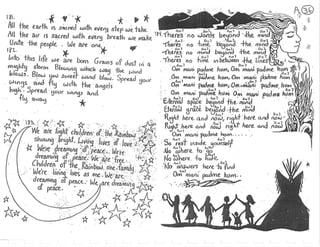 131.
All the earth is sacred with every step we take.
All the air is sacred with every breath we make
Unite the people. We are one.
132.
Into this life we are born Grains of dust in a
mighty storm. Blowing which way the wind
blows. Blow you sweet wind blow. Spread your
wings and fly with the angels
high. Spread your wings and
fly away
133.
We are light children of the Rainbow
Shining bright. Loving lives of love
We're dreaming of peace. We're
dreaming of peace. We are free.
Children of the Rainbow one family
We're living lives as one. We are
dreaming of peace. We are dreaming
of peace.
36
There's no words beyond the mind
There's no time beyond the mind
There's no mind beyond the mind
There's no time in between the lines
Om mani padme hum, Om mani padme hum
Om mani padme hum, Om mani padme hum
Om mani padme hum, Om mani padme hum
Om mani padme hum Om mani padme hum
Eternal space beyond the mind
Eternal grace beyond the mind
Right here and now, right here and now
Right here and now right here and now
Om mani padme hum......
So rest inside yourself
No where to
No where to hide
No answers here to find
Om mani padme hum..